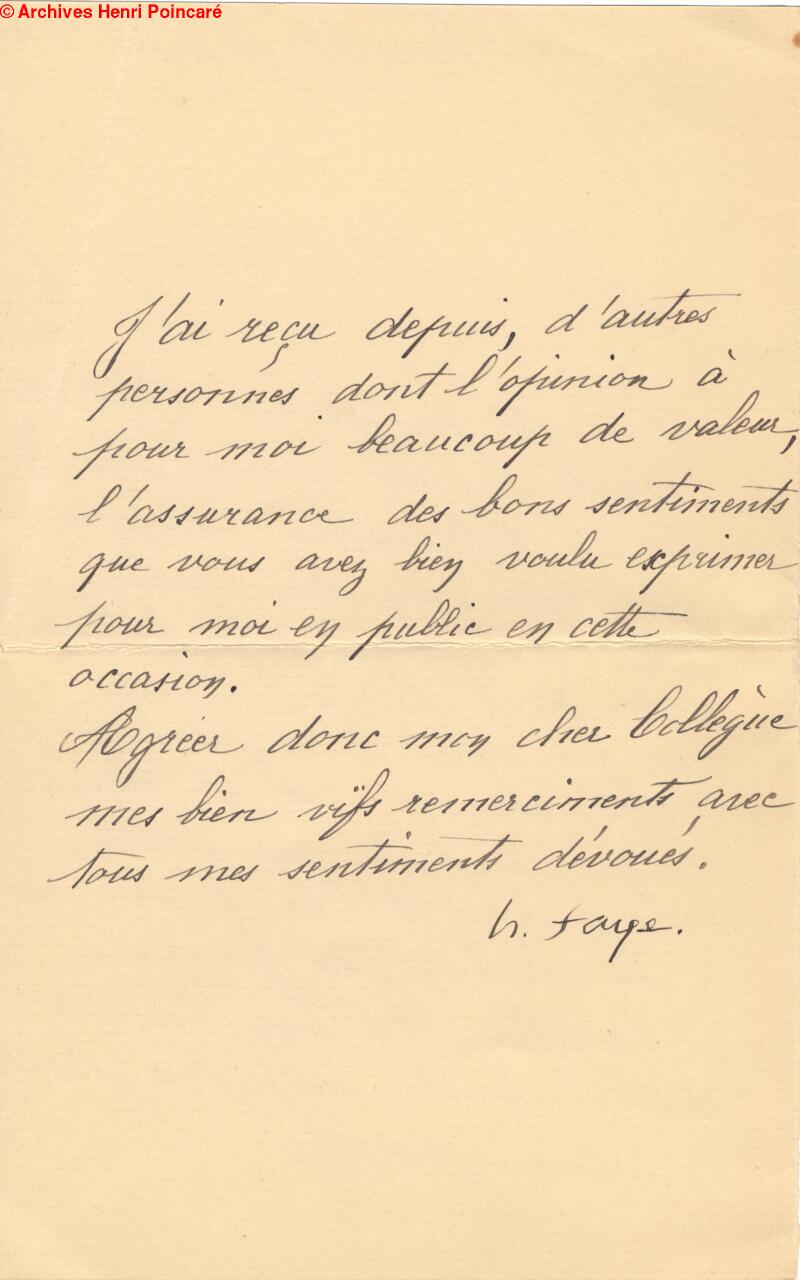 © Archives Henri Poincaré
J'ai reçu depuis, d'autres
personnes dont l'opinion à
pour moi beaucoup de valeur,
l'assurance des bons sentiments
que vous avez bien voulu exprimer
pour moi en public en cette
occasion.
Agréer donc mon cher Collègue
mes bien vifs remerciments avec
tous mes sentiments dévoués.
h. Faye.